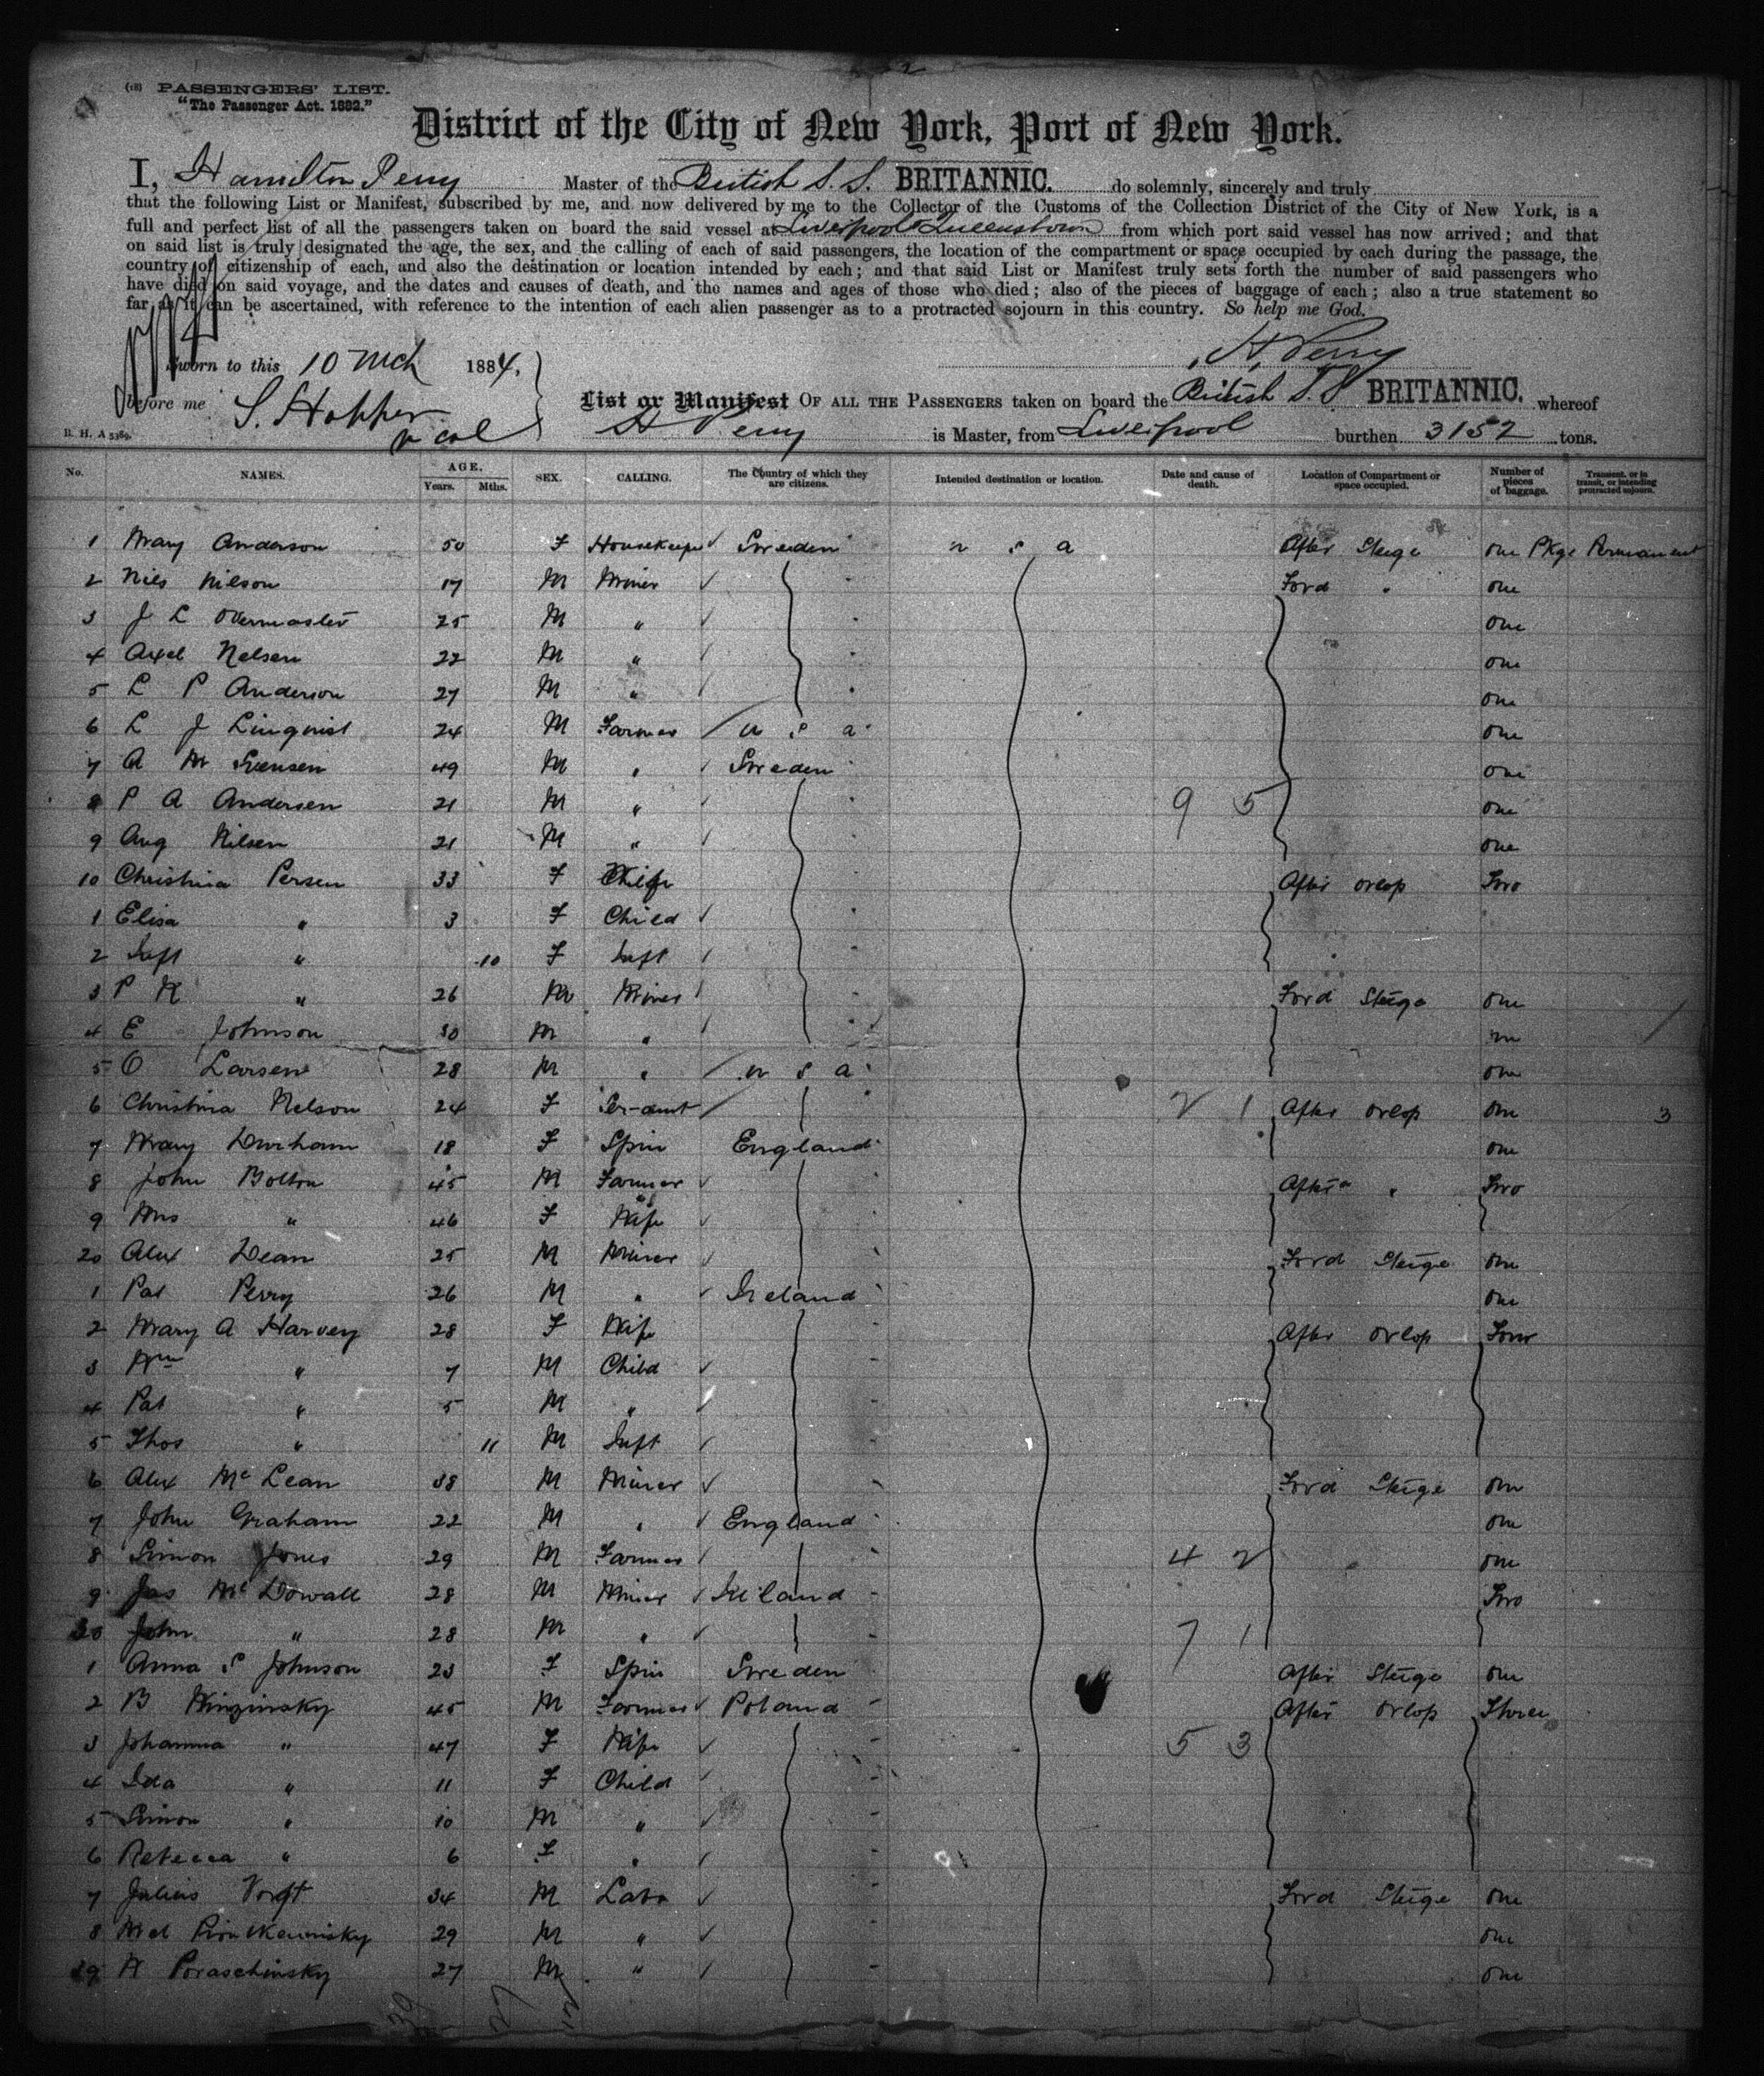 (18) PASSENGERS' LIST.
"The Passenger Act. 1882."
District of the City of New York, Port of New York.
I, Hamilton Perry Master of the British S.S. BRITANNIC. do solemnly, sincerely and truly
that the following List or Manifest, subscribed by me, and now delivered by me to the Collector of the Customs of the Collection District of the City of New York, is a
full and perfect list of all the passengers taken on board the said vessel at Liverpool & Queenstown from which port said vessel has now arrived; and that
on said list is truly designated the age, the sex, and the calling of each of said passengers, the location of the compartment or space occupied by each during the passage, the
country of citizenship of each, and also the destination or location intended by each; and that said List or Manifest truly sets forth the number of said passengers who
have died on said voyage, and the dates and causes of death, and the names and ages of those who died; also of the pieces of baggage of each; also a true statement so
far as it can be ascertained, with reference to the intention of each alien passenger as to a protracted sojourn in this country. So help me God.
Sworn to this 10 Mch 1884, H. Perry
before me S. Hopper List or Manifest OF ALL THE PASSENGERS taken on board the British S.S BRITANNIC. whereof
B. H. A 5389. D col H Perry is Master, from Liverpool burthen 3152 tons.
No. NAMES. AGE. Years. Mths. SEX. CALLING. The Country of which they are citizens. Intended destination or location. Date and cause of death. Location of Compartment or space occupied. Number of pieces of baggage. Transient, or in transit, or intending protracted sojourn.
1 Mary Anderson 50 F Housekeeper Sweden U S A After Steige one Pkge Permanent
2 Nils Nilson 17 M Miner Ford " one
3 J L 25 M " one
4 Axel Nelsen 22 M " one
5 L P Anderson 27 M " one
6 L J Linqvist 24 M Farmer U S A one
7 A M Svensen 49 M " Sweden one
8 P A Andersen 21 M " 9 5 one
9 Aug Nilsen 21 M " one
10 Christina Persen 33 F After orlop Two
1 Elisa " 3 F Child
2 Inft " 10 F Inft
3 P N " 26 M Miner Ford Steige one
4 E Johnson 30 M " one
5 O Larsen 28 M " U S A one
6 Christina Nelson 24 F Servant 2 1 After orlop one 3
7 Mary Durham 18 F Spin England one
8 John Bolton 45 M Farmer After " Two
9 Mrs " 46 F Wife
20 Alex Dean 25 M Miner Ford Steige one
1 Pat Perry 26 M " Ireland one
2 Mary A Harvey 28 F Wife After orlop Four
3 Wm " 7 M Child
4 Pat " 5 M "
5 Thos " 11 M Inft
6 Alex McLean 38 M Miner Ford Steige one
7 John Graham 22 M " England one
8 Simon Jones 29 M Farmer 4 2 one
9 Jas McDowall 28 M Miner Ireland Two
30 John " 28 M " 7 1
1 Anna S Johnson 23 F Spin Sweden After Steige one
2 B Winzinsky 45 M Farmer Poland After Orlop Three
3 Johanna " 47 F Wife 5 3
4 Ida " 11 F Child
5 Simon " 10 M "
6 Rebecca " 6 F "
7 Julius 34 M Labr Ford Steige one
8 29 M " one
39 A Poraschinsky 27 M " one
39 27 12